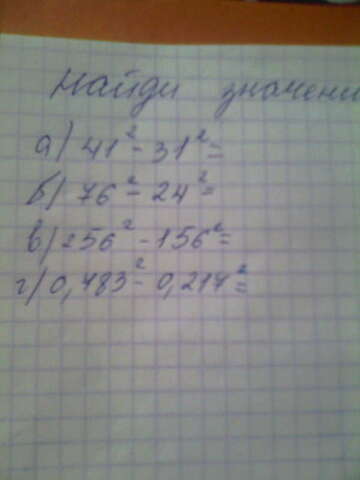 Найди значени
а) 41² - 31² =
б) 76² - 24² =
в) 256² - 156² =
г) 0,783² - 0,217² =